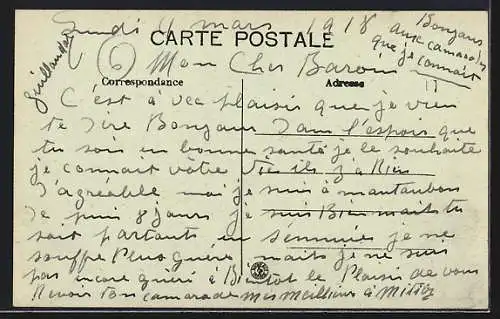 Lundi 9 mars 1918 Bonjour
aux camarades
que je connait
CARTE POSTALE
Mon Cher Baroin
Correspondance Adresse
C'est a vec plaisir que je vien
te dire Bonjour Dans l'espoir que
tu soit en bonne santé je le souhaite
je connait vôtre ils y a Rien
D'agréable moi je suis a montauban
De puis 8 jours je suis Bien mais tu
sait partout on s'ennuie je ne
souffre Plus guère mais je ne suis
pas encore guéri à Bientot le Plaisir de vous
Revoir ton camarade mes meillieurs à